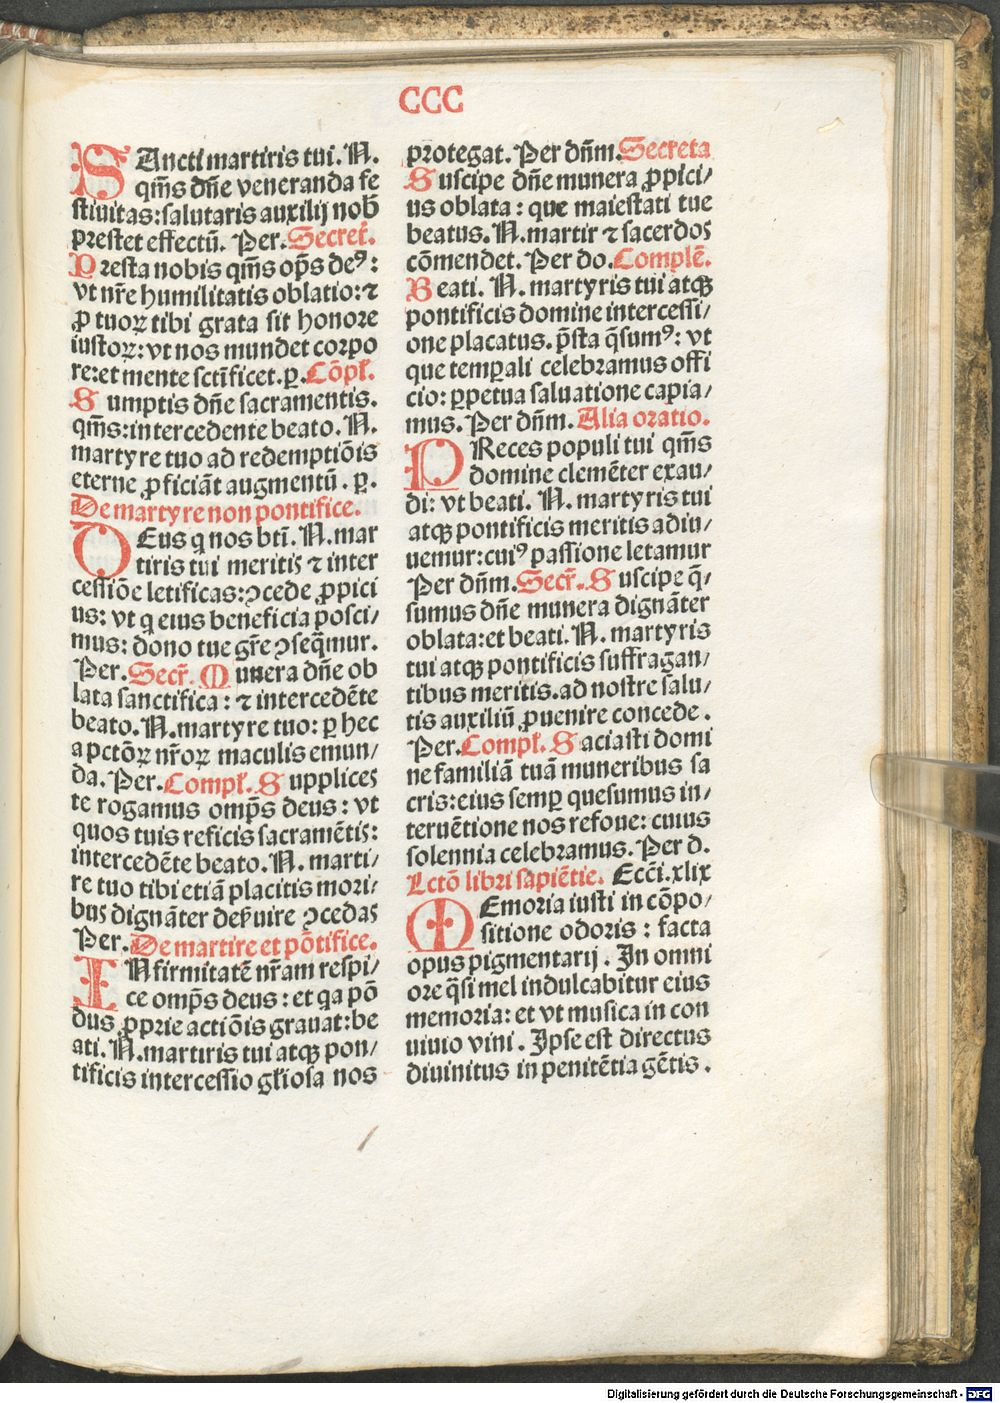 CCC
SAncti martiris tui. N.
qm̄s dn̄e veneranda fe
stiuitas: salutaris auxilij nob̄
prestet effectū. Per. Secret̄.
Presta nobis qm̄s op̄s deꝰ:
vt nr̄e humilitatis oblatio: ⁊
ꝓ tuoꝝ tibi grata sit honore
iustoꝝ: vt nos mundet corpo
re: et mente sctīficet. ꝑ. Cōpl̄.
Sumptis dn̄e sacramentis.
qm̄s: intercedente beato. N.
martyre tuo ad redemptiōis
eterne ꝓficiāt augmentū. ꝑ.
De martyre non pontifice.
DEus q nos btī. N. mar
tiris tui meritis ⁊ inter
cessiōe letificas: ꝯcede ꝓpici
us: vt q eius beneficia posci/
mus: dono tue gr̄e ꝯseq̄mur.
Per. Secr̄. Munera dn̄e ob
lata sanctifica: ⁊ intercedēte
beato. N. martyre tuo: ꝑ hec
a pctōꝝ nr̄oꝝ maculis emun/
da. Per. Compl̄. Supplices
te rogamus omp̄s deus: vt
quos tuis reficis sacramētis:
intercedēte beato. N. marti/
re tuo tibi etiā placitis mori/
bus dignāter deſ̄uire ꝯcedas
Per. De martire et pōtifice.
INfirmitatē nr̄am respi/
ce omp̄s deus: et qa pō
dus ꝓprie actiōis grauat: be
ati. N. martiris tui atqꝫ pon/
tificis intercessio gl̄iosa nos
protegat. Per dn̄m. Secreta
Suscipe dn̄e munera ꝓpici/
us oblata: que maiestati tue
beatus. N. martir ⁊ sacerdos
cōmendet. Per do. Complē.
Beati. N. martyris tui atqꝫ
pontificis domine intercessi/
one placatus. p̄sta q̄sumꝰ: vt
que temꝑali celebramus offi
cio: ꝑpetua saluatione capia/
mus. Per dn̄m. Alia oratio.
PReces populi tui qm̄s
domine clemēter exau/
di: vt beati. N. martyris tui
atqꝫ pontificis meritis adiu/
uemur: cuiꝰ passione letamur
Per dn̄m. Secr̄. Suscipe q̄/
sumus dn̄e munera dignāter
oblata: et beati. N. martyris
tui atqꝫ pontificis suffragan/
tibus meritis. ad nostre salu/
tis auxiliū ꝓuenire concede.
Per. Compl̄. Saciasti domi
ne familiā tuā muneribus sa
cris: eius semꝑ quesumus in/
teruētione nos refoue: cuius
solennia celebramus. Per d.
Lctō libri sapiētie. Eccī. xlix
MEmoria iusti in cōpo/
sitione odoris: facta
opus pigmentarij. In omni
ore q̄si mel indulcabitur eius
memoria: et vt musica in con
uiuio vini. Ipse est directus
diuinitus in penitētia gētis.
Digitalisierung gefördert durch die Deutsche Forschungsgemeinschaft - DFG